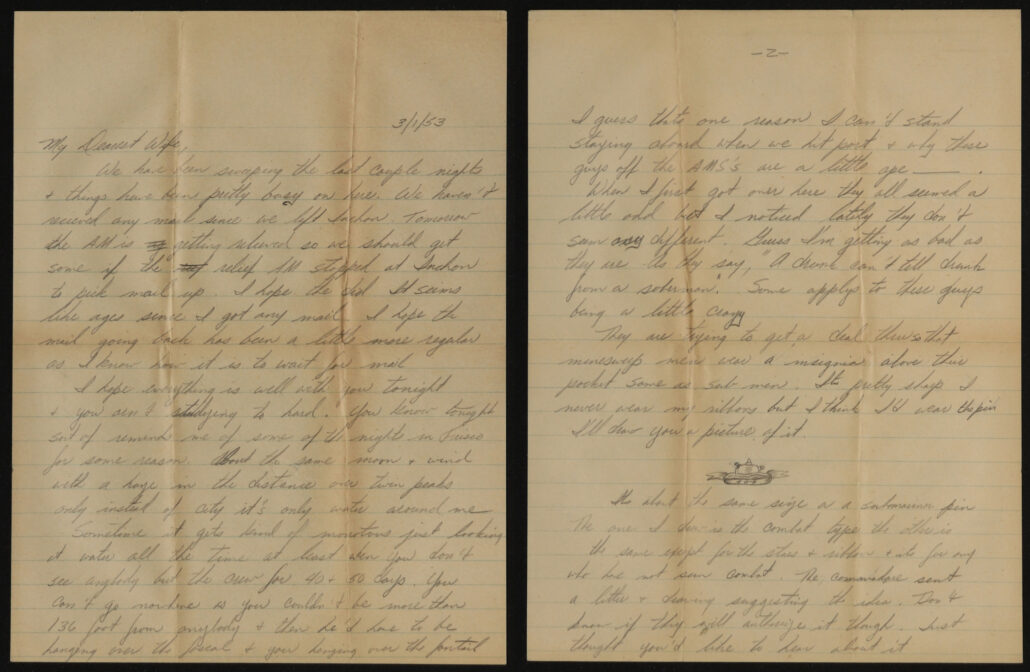 3/1/53
My Dearest Wife,
We have been sweeping the last couple nights
& things have been pretty busy on here. We haven't
recieved any mail since we left Inchon. Tomorrow
the AM is getting relieved so we should get
some if the relief AM stopped at Inchon
to pick mail up. I hope the did. It seems
like ages since I got any mail. I hope the
mail going back has been a little more regular
as I know how it is to wait for mail
I hope everything is well with you tonight
& you aren't studying to hard. You know tonight
sort of reminds me of some of the nights in Frisco
for some reason. About the same moon & wind
with a haze in the distance over twin peaks
only insted of city it's only water around me
Sometime it gets kind of monotons just looking
at water all the time at least when you don't
see anybody but the crew for 40 & 50 days. You
can't go nowhere as you couldn't be more than
136 foot from anybody & then he'd have to be
hanging over the & your hanging over the fantail
-2-
I guess thats one reason I can't stand
staying aboard when we hit port & why these
guys off the AMS's are a little ape —.
When I first got over here they all seemed a
little odd but I noticed lately they don't
seem any different. Guess I'm getting as bad as
they are. As they say, "A drunk can't tell drunk
from a soberman". Same applys to these guys
being a little crazy
They are trying to get a deal thru so that
minesweep men wear a insignia above there
pocket same as sub men. Its pretty sharp I
never wear my ribbons but I think I'd wear this pin
I'll draw you a picture of it.
Its about the same size as a submarine pin
The one I drew is the combat type the other is
the same exept for the stars & ribbon & its for any
who has not seen combat. The commodore sent
a letter & drawing suggesting the idea. Don't
know if they will authorize it though. Just
thought you'd like to hear about it